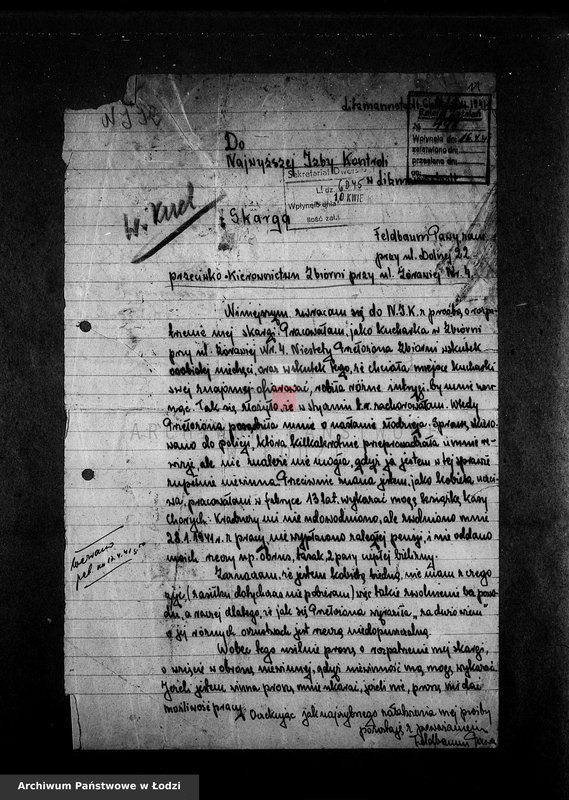 11
Litzmannstadt
N I K
Do
Najwyższej Izby Kontroli
w Litzmannstadt
Wpłynęło dn. 16.4.41
załatwiono dn.
przesłano dn.
Sekretariat
L. dz. 6045
Wpłynęło dnia 10 KWIE
Ilość zał.
Skarga
Feldbaum zam.
przy ul. Dolnej 22
przeciwko Kierownictwu Zbiórni przy ul. Żórawiej Nr. 4.
Niniejszym zwracam się do N.I.K. z prośbą o rozpa-
trzenie mej skargi. Pracowałam, jako kucharka w Zbiórni
przy ul. Żórawiej Nr. 4. Niestety Przełożona Zbiórni wskutek
osobistej niechęci, oraz wskutek tego, że chciała miejsce kucharki
swej znajomej ofiarować, robiła różne intrygi, by mnie
Tak się złożyło, że w styczniu b.r. zachorowałam. Wtedy
Przełożona posądziła mnie o nasłanie złodzieja. Sprawę skiero-
wano do policji, która kilkakrotnie przeprowadzała u mnie re-
wizję, ale nic znaleść nie mogła, gdyż ja jestem w tej sprawie
zupełnie niewinna. Przeciwnie znana jestem, jako kobieta uczci-
wa, pracowałam w fabryce 13 lat, wykazać mogę książką Kasy
Chorych. Kradzieży mi nie udowodniono, ale zwolniono mnie
28.1.1941 r. z pracy, nie wypłacono należnej pensji, i nie oddano
moich rzeczy np. obrus, 2 pary ciepłej bielizny.
Zaznaczam, że jestem kobietą biedną, nie mam z czego
żyć, (zasiłku dotychczas nie pobieram) więc takie zwolnienie bez powo-
du, a raczej dlatego, że jak się Przełożona wyraziła „za dużo wiem”
o jej różnych oszustwach jest rzeczą niedopuszczalną.
Wobec tego usilnie proszę o rozpatrzenie mej skargi,
o wzięcie w obronę niewinnej, gdyż niewinność mą mogę wykazać.
Jeżeli jestem winna proszę mnie ukarać, jeżeli nie, proszę mi dać
możliwość pracy.
Oczekując jak najrychlejszego załatwienia mej prośby
pozostaję z poważaniem
Feldbaum
Archiwum Państwowe w Łodzi